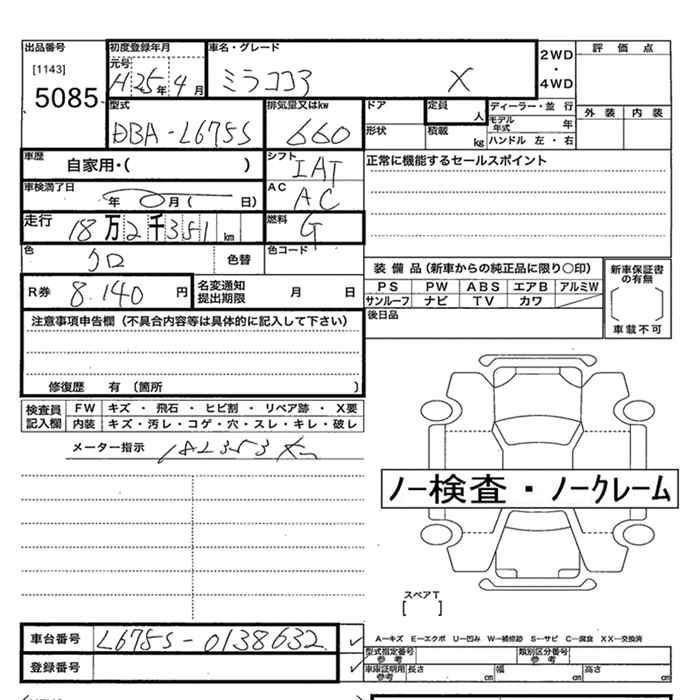 出品番号 初度登録年月 車名・グレード 2WD 評価点
[1143] 元号 ・
5085 H 25年 4月 ミラココア X 4WD
型式 排気量又はkw ドア 定員 人 ディーラー・並 行 外装 内装
DBA-L675S 660 形状 積載 kg モデル年式 年
ハンドル 左・右
車歴 自家用・( ) シフト IAT 正常に機能するセールスポイント
車検満了日 年 月( 日) AC AC
走行 18万2千351km 燃料 G
色 クロ 色替 色コード
装備品(新車からの純正品に限り○印) 新車保証書の有無
R券 8.140円 名変通知提出期限 月 日 PS PW ABS エアB アルミW
サンルーフ ナビ TV カワ
注意事項申告欄(不具合内容等は具体的に記入して下さい) 後日品 車載不可
修復歴 有 〔箇所 〕
検査員記入欄 FW キズ・飛石・ヒビ割・リペア跡・X要
内装 キズ・汚レ・コゲ・穴・スレ・キレ・破レ
メーター指示 182353 Km
ノー検査・ノークレーム
スペアT
[ ]
車台番号 L675S-0138632 A−キズ E−エクボ U−凹み W−補修跡 S−サビ C−腐食 XX−交換済
型式指定番号 参考 類別区分番号 参考
登録番号 車庫証明用 参考 長さ cm 幅 cm 高さ cm